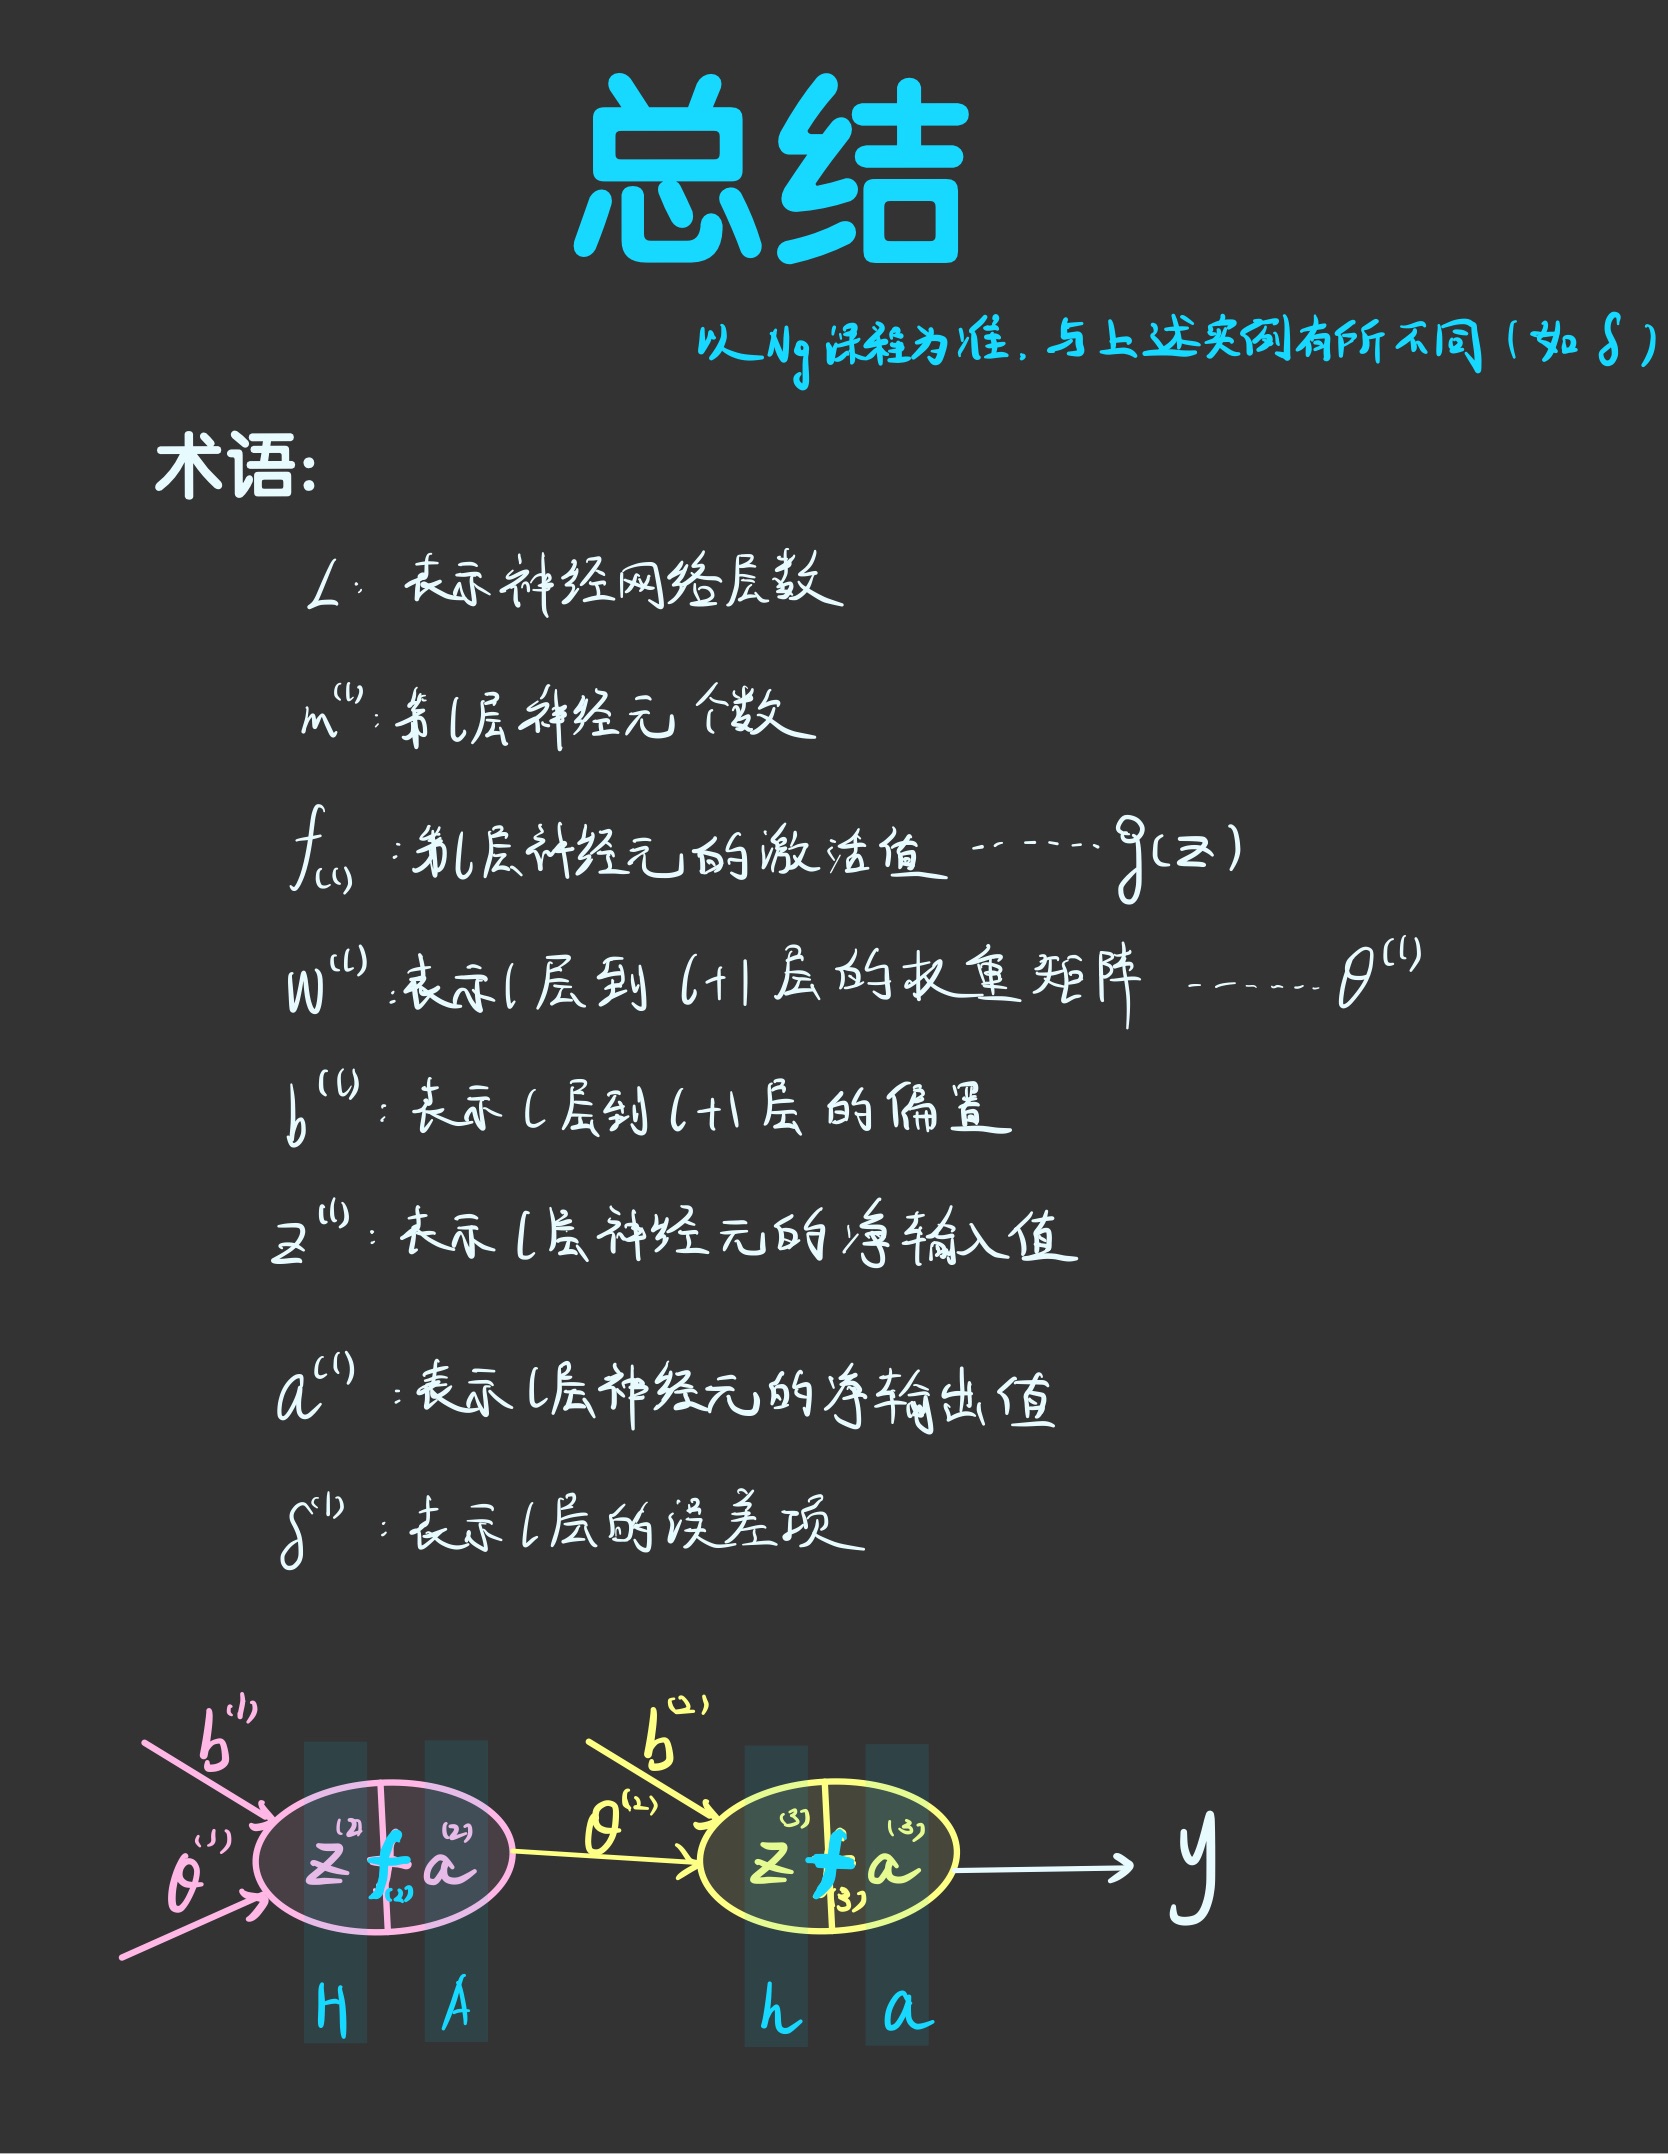 总结
以Ng课程为准,与上述实例有所不同(如δ)
术语:
L: 表示神经网络层数
m⁽ˡ⁾: 第l层神经元个数
f₍ₗ₎: 第l层神经元的激活值 ------ g(z)
W⁽ˡ⁾: 表示l层到l+1层的权重矩阵 ------- θ⁽ˡ⁾
b⁽ˡ⁾: 表示l层到l+1层的偏置
z⁽ˡ⁾: 表示l层神经元的净输入值
a⁽ˡ⁾: 表示l层神经元的净输出值
δ⁽ˡ⁾: 表示l层的误差项
b⁽¹⁾ b⁽²⁾
θ⁽¹⁾ z⁽²⁾ f₍₂₎ a⁽²⁾ θ⁽²⁾ z⁽³⁾ f₍₃₎ a⁽³⁾ y
H A h a